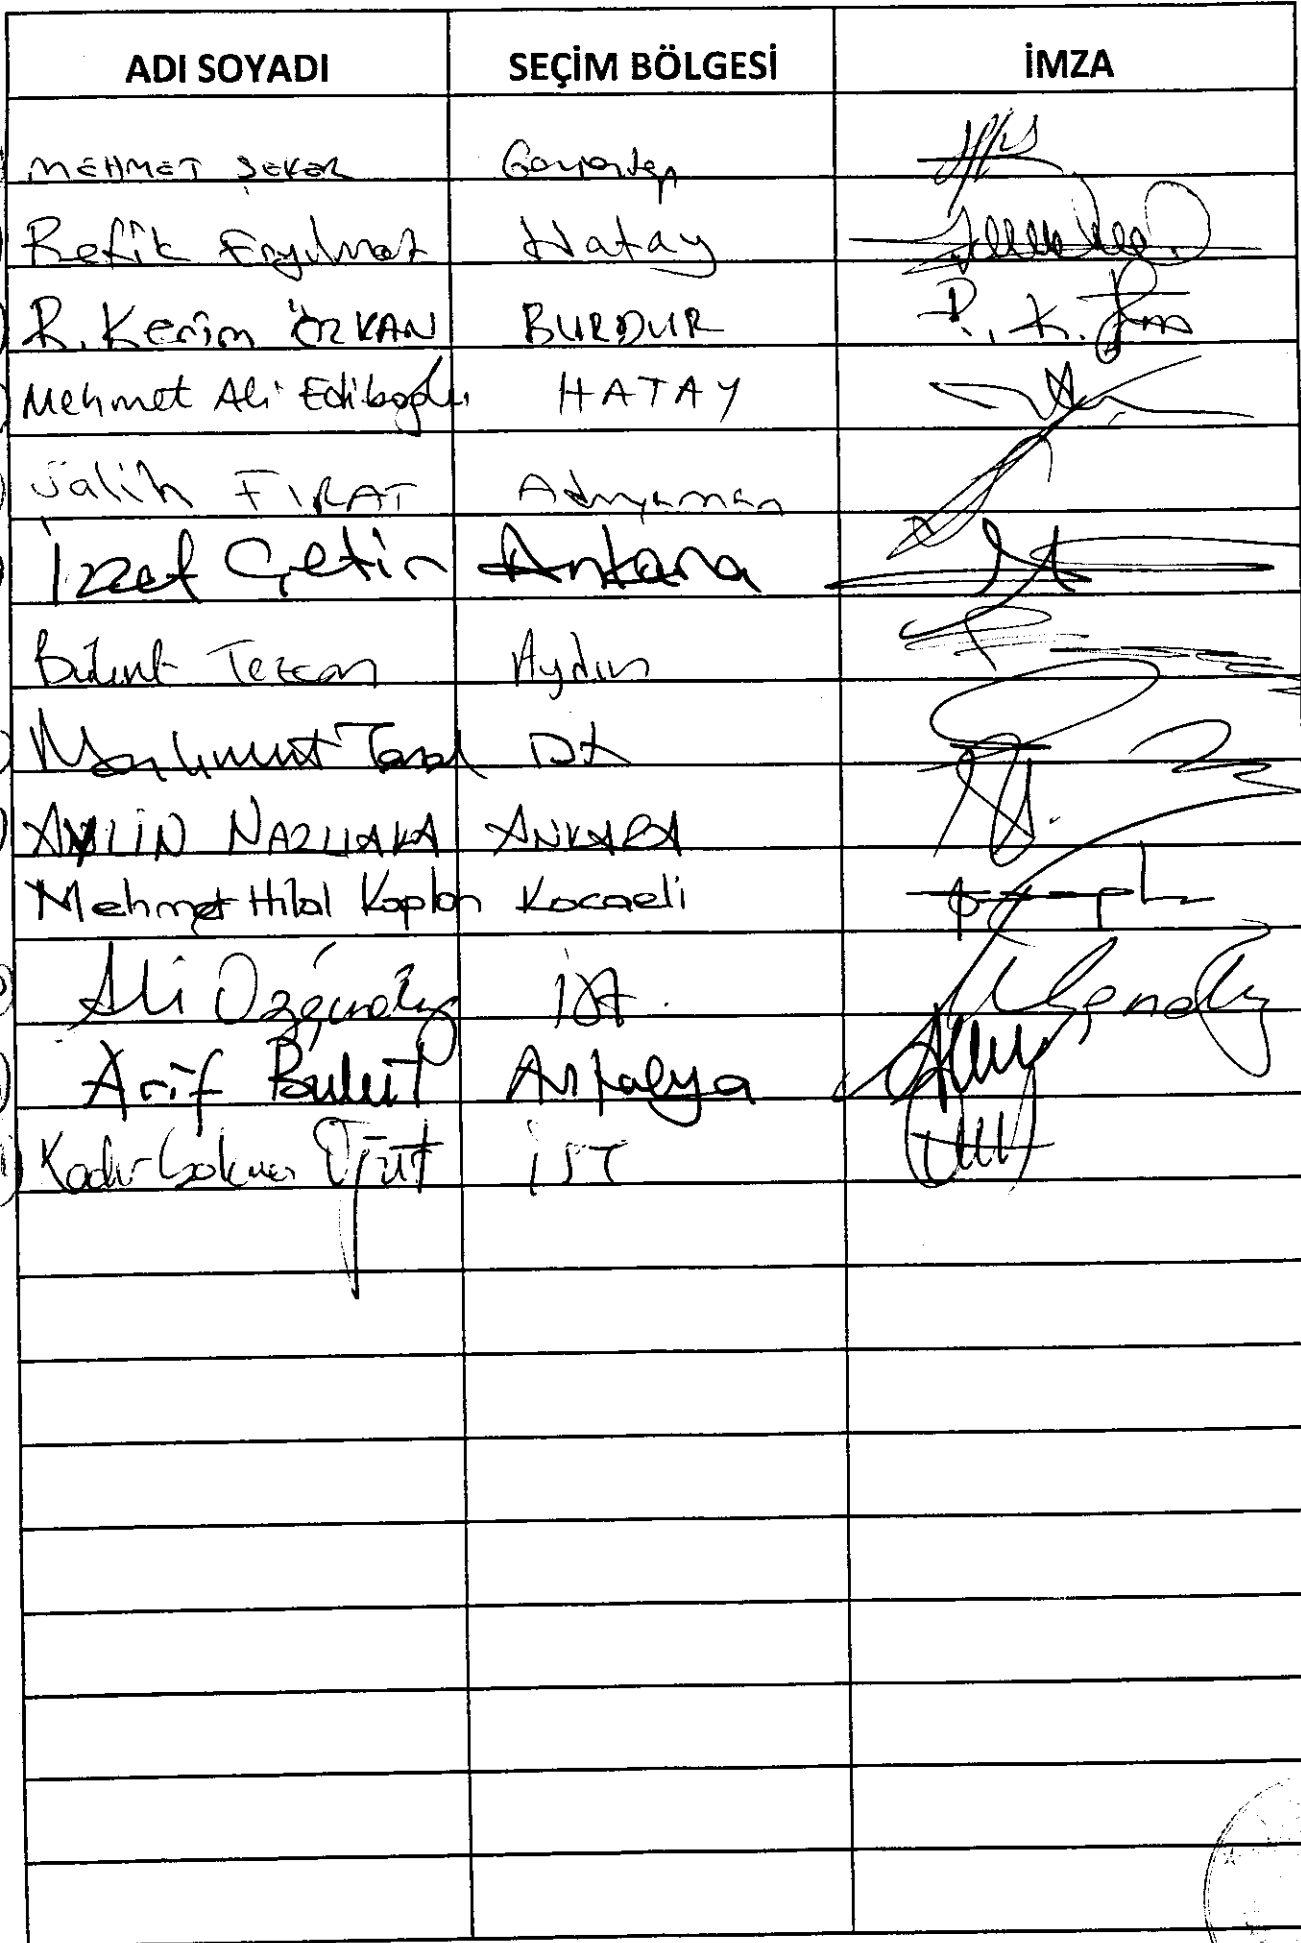 ADI SOYADI SEÇİM BÖLGESİ İMZA
MEHMET ŞEKER Gaziantep
Refik Eryılmaz Hatay
R. Kerim ÖZKAN BURDUR R. K.
Mehmet Ali Ediboğlu HATAY
Salih FIRAT Adıyaman
İzzet Çetin Ankara
Bülent Tezcan Aydın
Mahmut Tanal İst
AYLİN NAZLIAKA ANKARA
Mehmet Hilal Kaplan Kocaeli
Ali Özgündüz İST.
Arif Bulut Antalya
Kadir Gökmen Öğüt İST